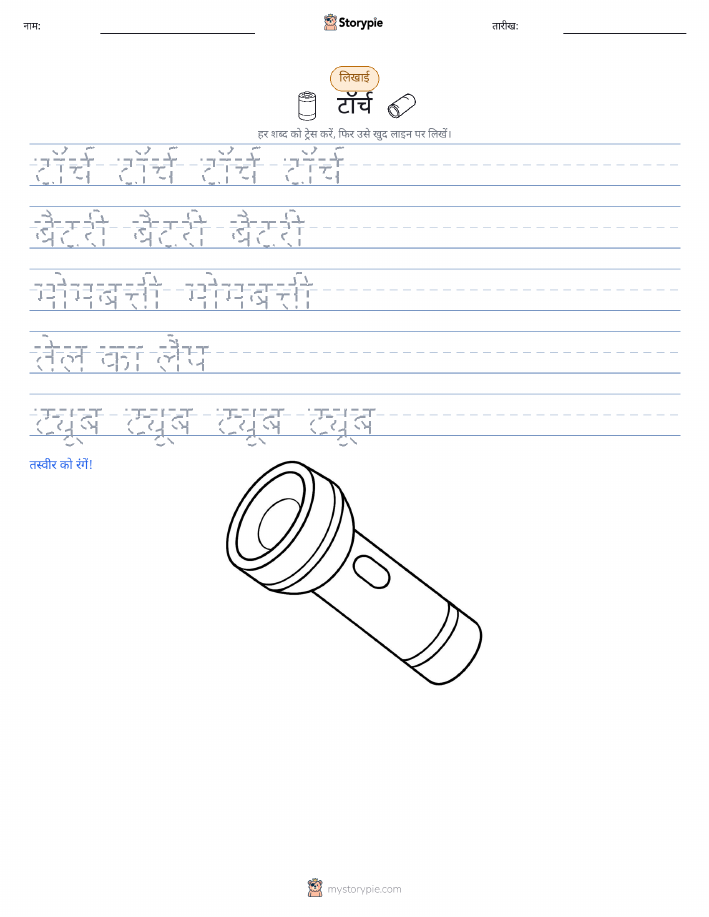 नाम: Storypie तारीख:
लिखाई
टॉर्च
हर शब्द को ट्रेस करें, फिर उसे खुद लाइन पर लिखें।
टॉर्च टॉर्च टॉर्च टॉर्च
बैटरी बैटरी बैटरी
मोमबत्ती मोमबत्ती
तेल का लैंप
ट्यूब ट्यूब ट्यूब ट्यूब
तस्वीर को रंगें!
mystorypie.com